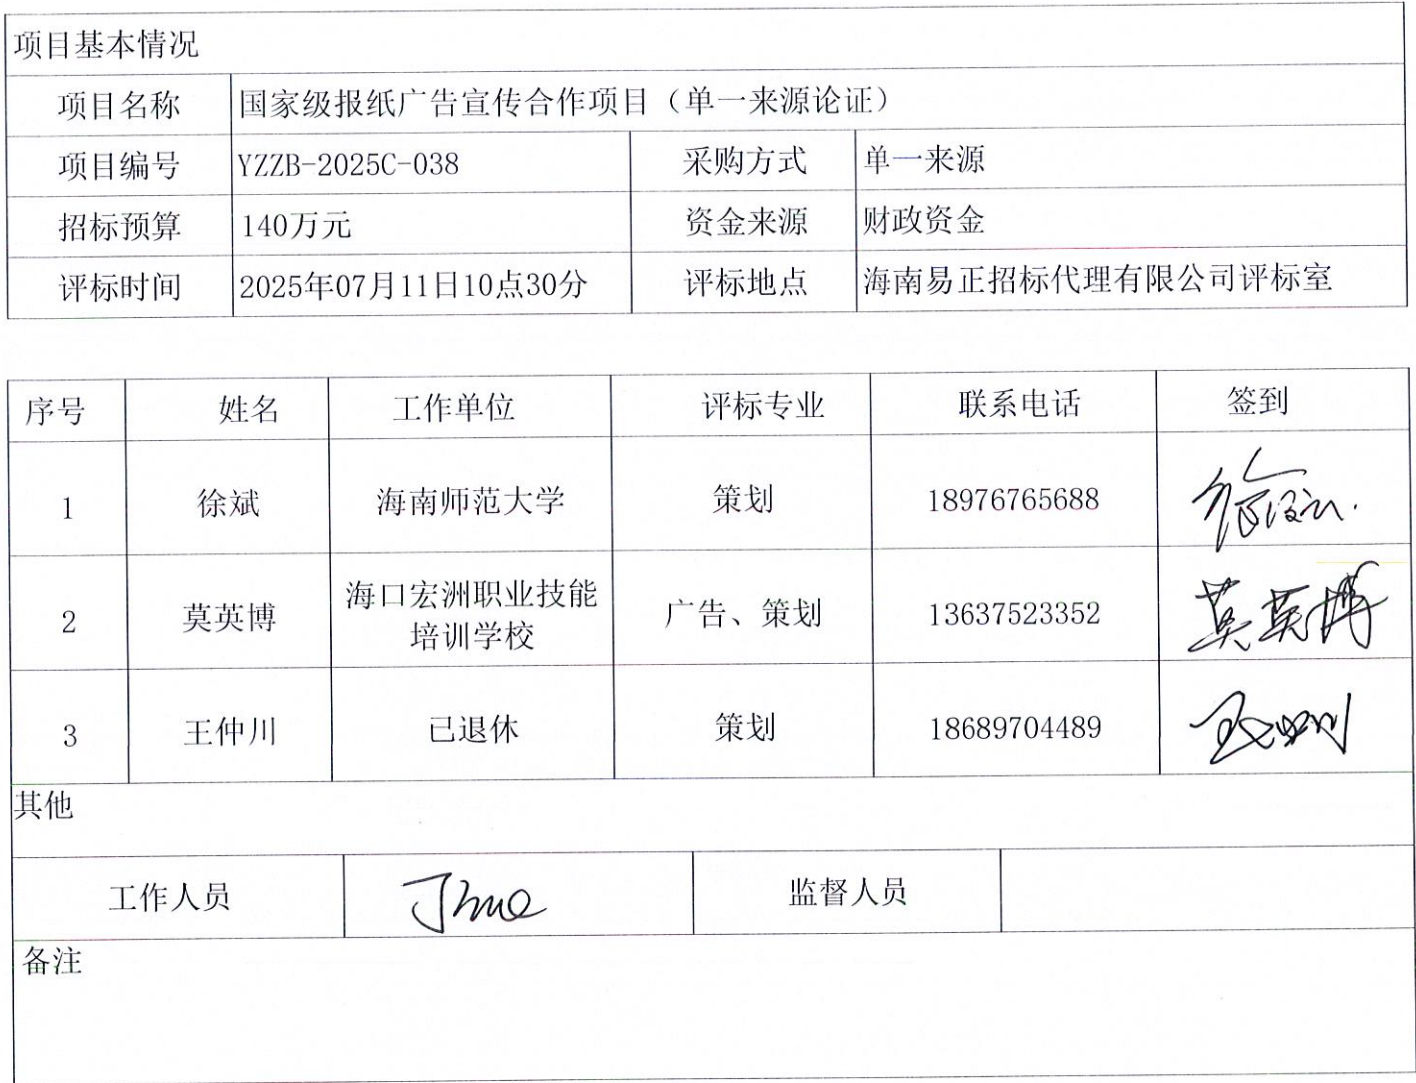 项目基本情况
项目名称 国家级报纸广告宣传合作项目（单一来源论证）
项目编号 YZZB-2025C-038 采购方式 单一来源
招标预算 140万元 资金来源 财政资金
评标时间 2025年07月11日10点30分 评标地点 海南易正招标代理有限公司评标室
序号 姓名 工作单位 评标专业 联系电话 签到
1 徐斌 海南师范大学 策划 18976765688
2 莫英博 海口宏洲职业技能 广告、策划 13637523352 莫英博
培训学校
3 王仲川 已退休 策划 18689704489
其他
工作人员 监督人员
备注